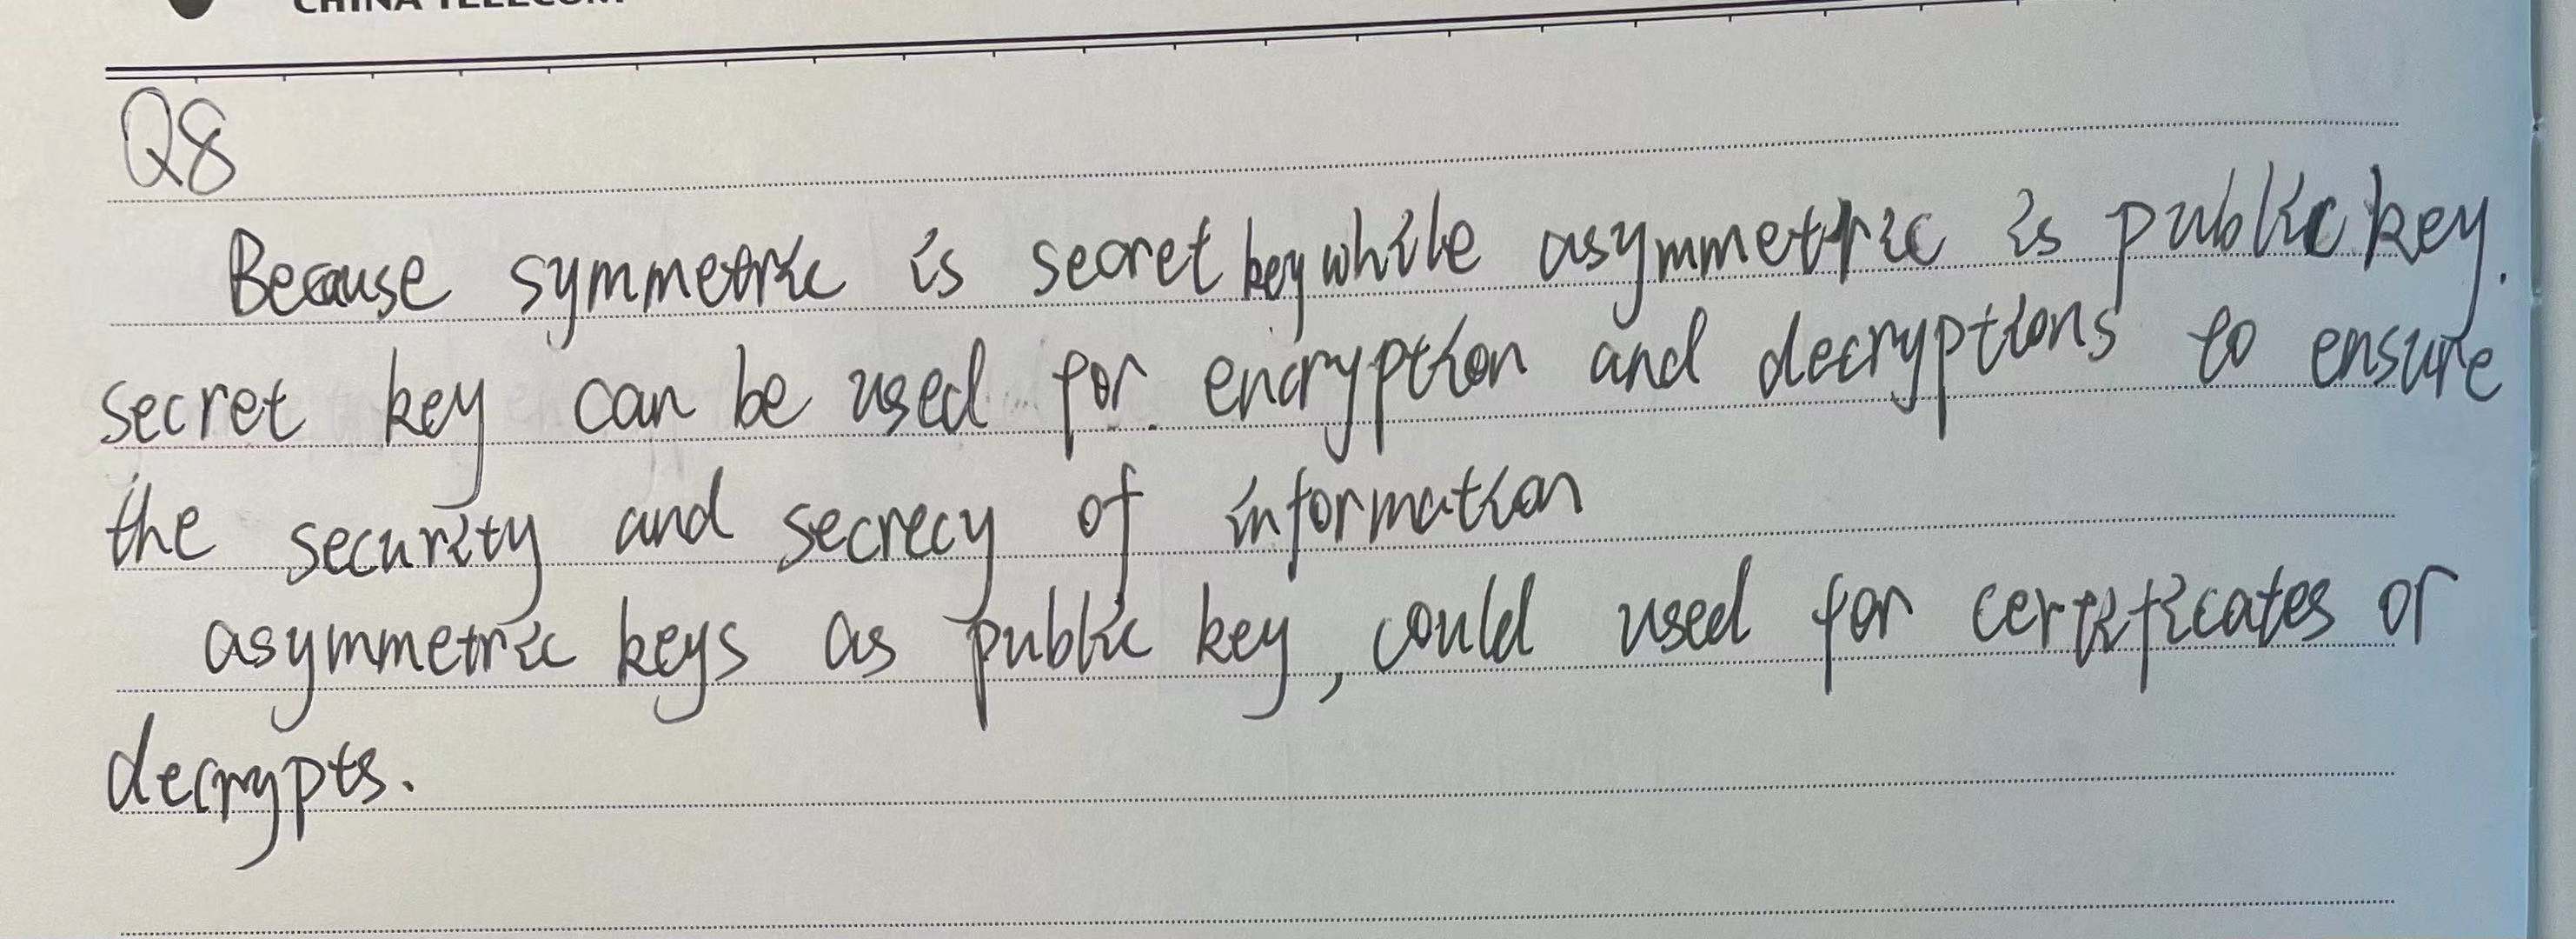 CHINA TELECOM
Q8
Because symmetric is secret key while asymmetric is public key.
secret key can be used for encryption and decryptions to ensure
the security and secrecy of information
asymmetric keys as public key, could used for certificates or
decrypts.